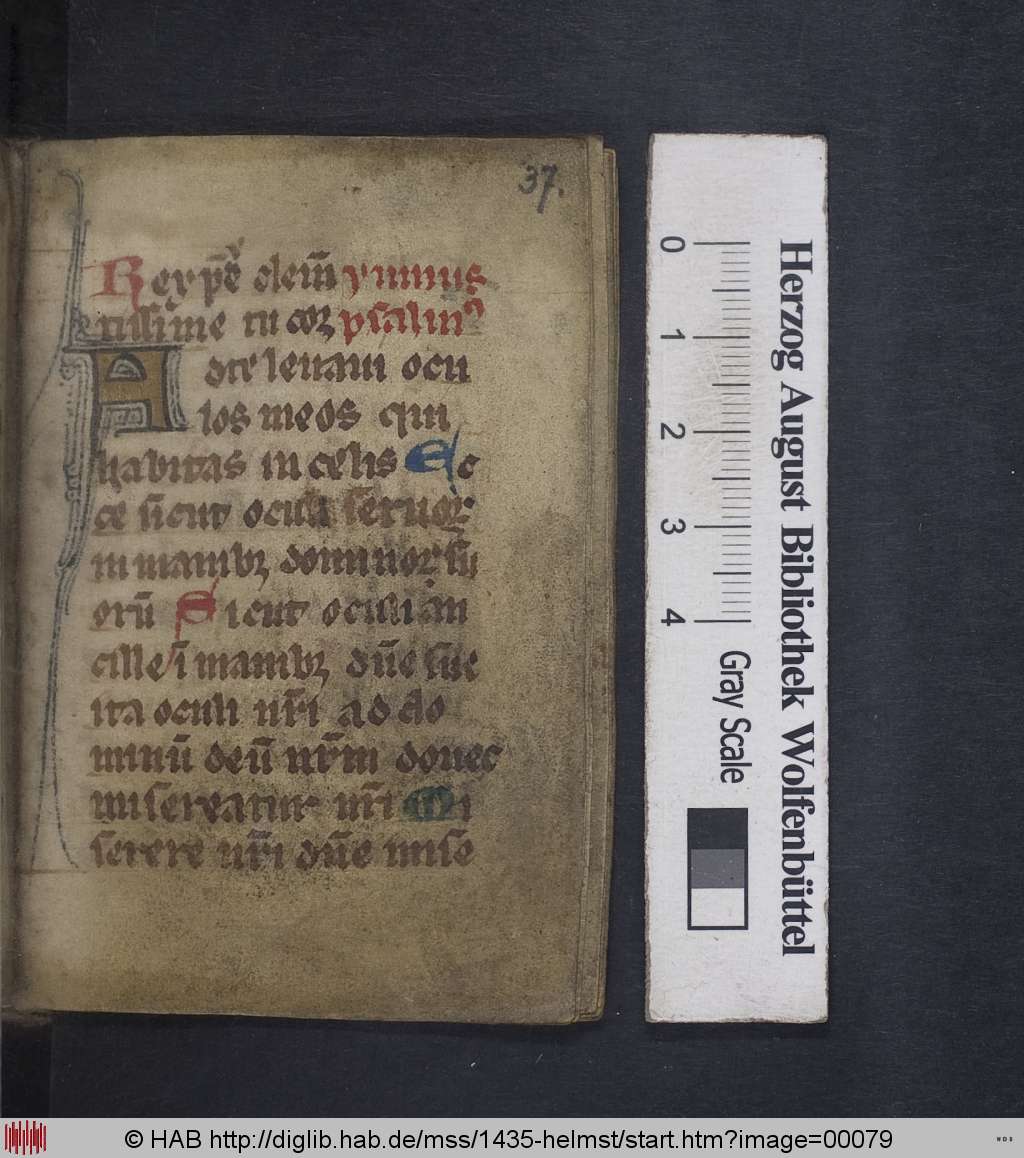 37.
Rex xpē clem̄ ymnus
tissime tu coꝝ psalmꝰ
Ad te levavi ocu
los meos qui
habitas in celis Ec
ce sicut oculi servoꝝ
in manibꝫ dominoꝝ su
orū Sicut oculi an
cille ī manibꝫ dn̄e sue
ita oculi nr̄i ad do
minū deū nr̄m donec
misereatur nr̄i Mi
serere nr̄i dn̄e mise
0 1 2 3 4
Gray Scale
Herzog August Bibliothek Wolfenbüttel
© HAB http://diglib.hab.de/mss/1435-helmst/start.htm?image=00079